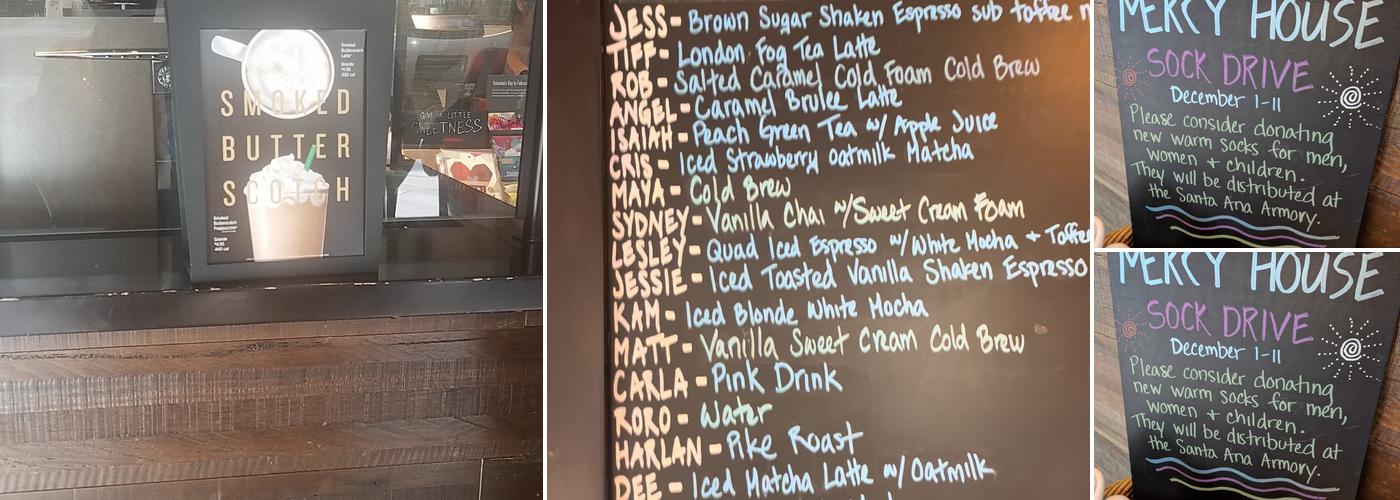 Smoked
Butterscotch
Latte
Grande
$4.95
SMOKED
BUTTER
SCOTCH
Smoked
Butterscotch
Frappuccino
Grande
$4.95
440 cal
GIVE A LITTLE
SWEETNESS
JESS - Brown Sugar Shaken Espresso sub toffee
TIFF - London Fog Tea Latte
ROB - Salted Caramel Cold Foam Cold Brew
ANGEL - Caramel Brulee Latte
ISAIAH - Peach Green Tea w/ Apple Juice
CRIS - Iced Strawberry Oatmilk Matcha
MAYA - Cold Brew
SYDNEY - Vanilla Chai w/ Sweet Cream Foam
LESLEY - Quad Iced Espresso w/ White Mocha + Toffee
JESSIE - Iced Toasted Vanilla Shaken Espresso
KAM - Iced Blonde White Mocha
MATT - Vanilla Sweet Cream Cold Brew
CARLA - Pink Drink
RORO - Water
HARLAN - Pike Roast
DEE - Iced Matcha Latte w/ Oatmilk
MERCY HOUSE
SOCK DRIVE
December 1-11
Please consider donating
new warm socks for men,
women + children.
They will be distributed at
the Santa Ana Armory.
MERCY HOUSE
SOCK DRIVE
December 1-11
Please consider donating
new warm socks for men,
women + children.
They will be distributed at
the Santa Ana Armory.